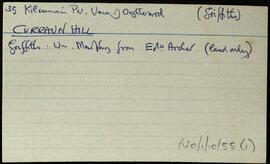 39 Kilcummin Par. Union of Oughterard (Griffiths)
CURRAUN HILL
Griffiths: Wm. Murphy from Edw Archer (land only)
A20/1/10/55 (1)